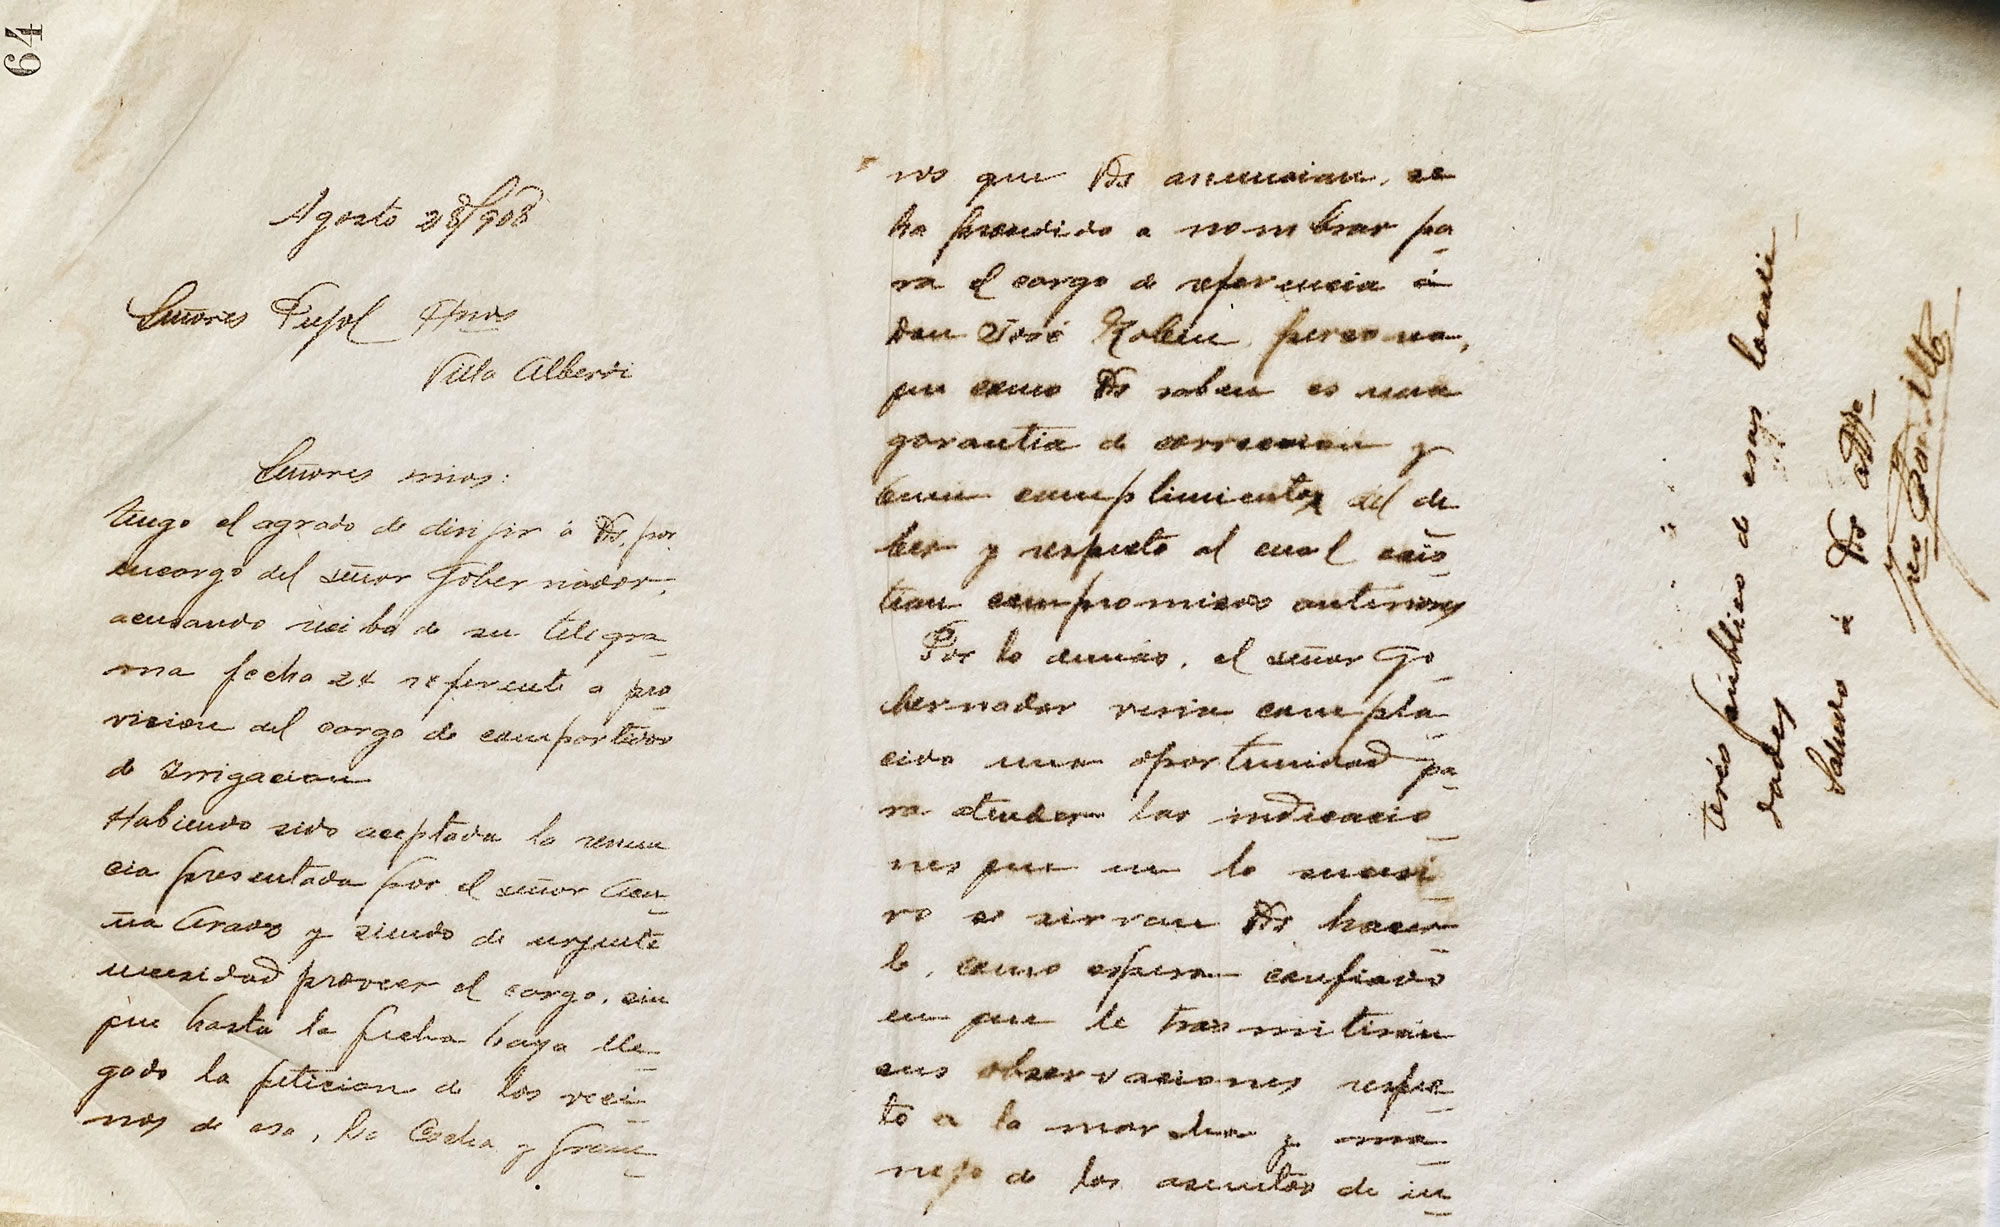 64
Agosto 28/908
Señores Pujol Hnos
Villa Alberdi
Señores mios:
tengo el agrado de dirijir á Vds. por
encargo del señor Gobernador,
acusando recibo de su telegra-
ma fecha 24 referente a pro-
vision del cargo de compartidor
de Irrigacion
Habiendo sido aceptada la renun
cia presentada por el señor Acu-
ña y siendo de urjente
necesidad proveer el cargo, sin
que hasta la fecha haya lle-
gado la peticion de los veci-
nos de esa, La Cocha y Gran-
ros que Vds anuncian, se
ha procedido a nombrar pa-
ra el cargo de referencia á
don José persona,
que como Vds saben es una
garantia de correccion y
buen cumplimiento del de-
ber y respecto al cual exis-
tian compromisos anteriores
Por lo demás, el señor Go-
bernador veria compla-
cido una oportunidad pa-
ra atender las indicacio-
nes que en lo sucesi-
vo se sirvan Vds hacer-
le, como espera confiado
en que le trasmitirán
sus observaciones respec-
to a la marcha y ma-
nejo de los asuntos de in-
terés público de esas locali-
dades
Saludo á Vds atte